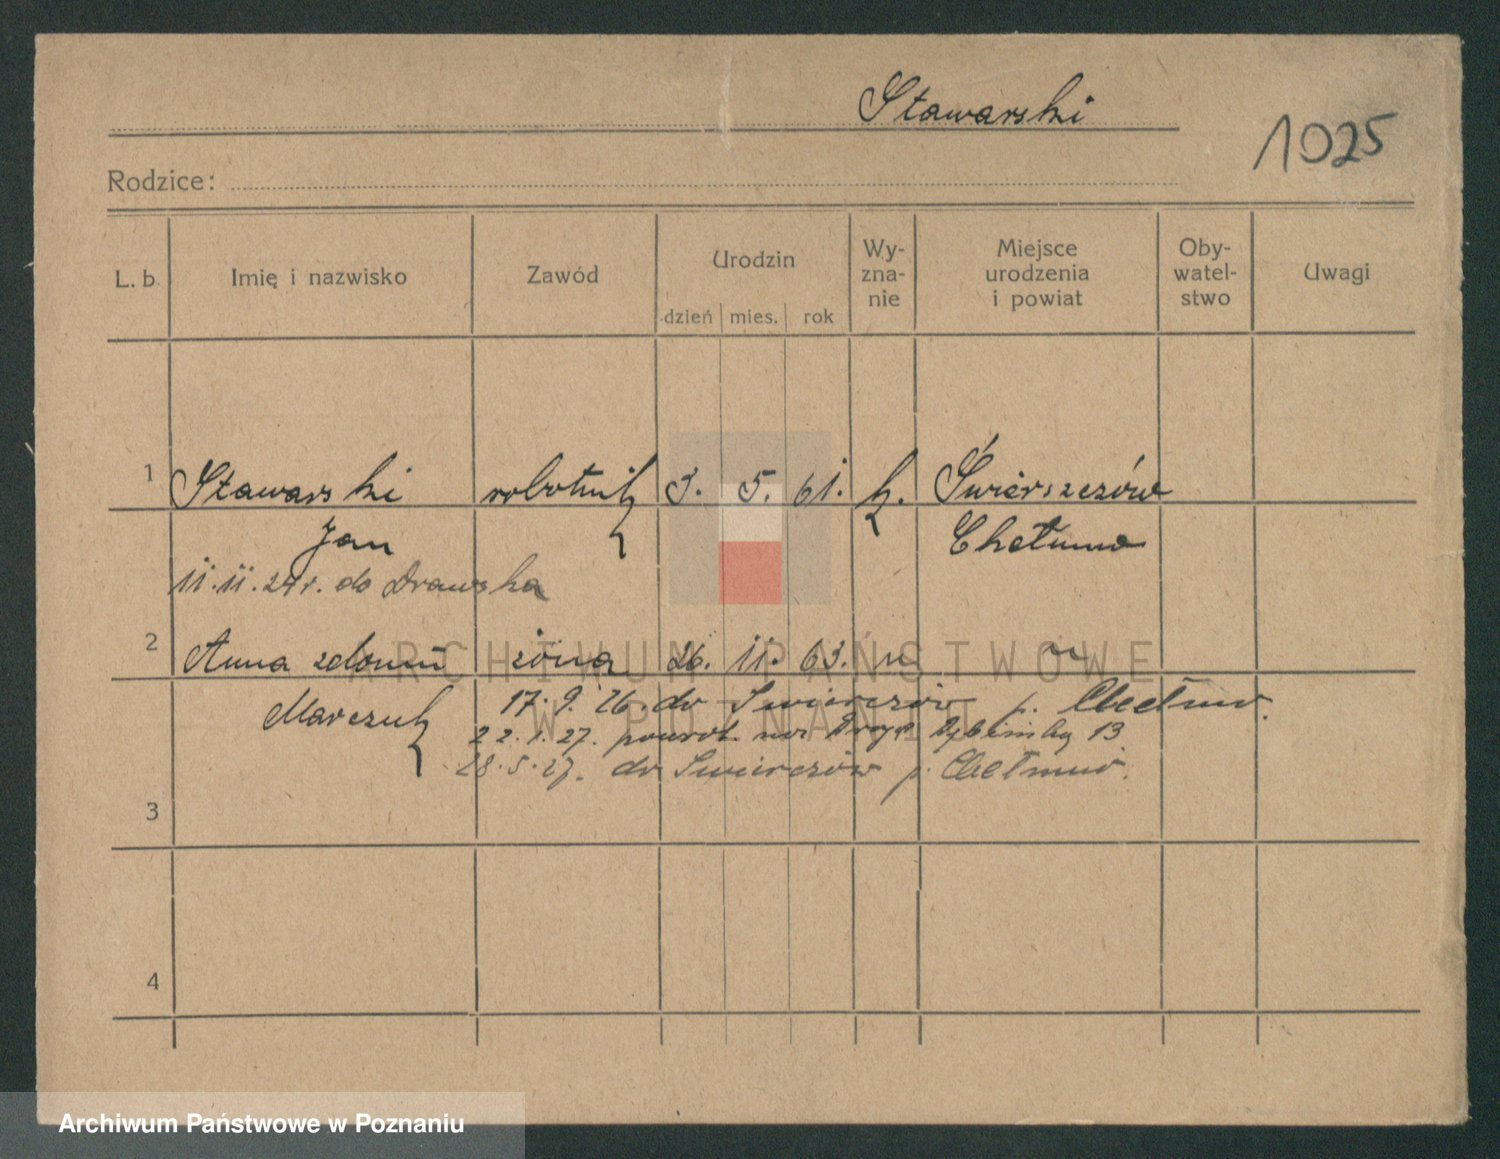 Stawarski
1025
Rodzice:
L. b. Imię i nazwisko Zawód Urodzin dzień mies. rok Wy-zna-nie Miejsce urodzenia i powiat Oby-watel-stwo Uwagi
1 Stawarski robotnik 3. 5. 61. k. Świerszczów
Jan Chełmno
11.11.24 r. do Drawska
2 Anna z domu żona 26. 11. 63. "
Marczuk 17.9.26. do Swierczów p. Chełmno.
22.1.27. powrot. 13
28.5.27. do Swierczów p. Chełmno.
3
4
ARCHIWUM PAŃSTWOWE
W POZNANIU
Archiwum Państwowe w Poznaniu